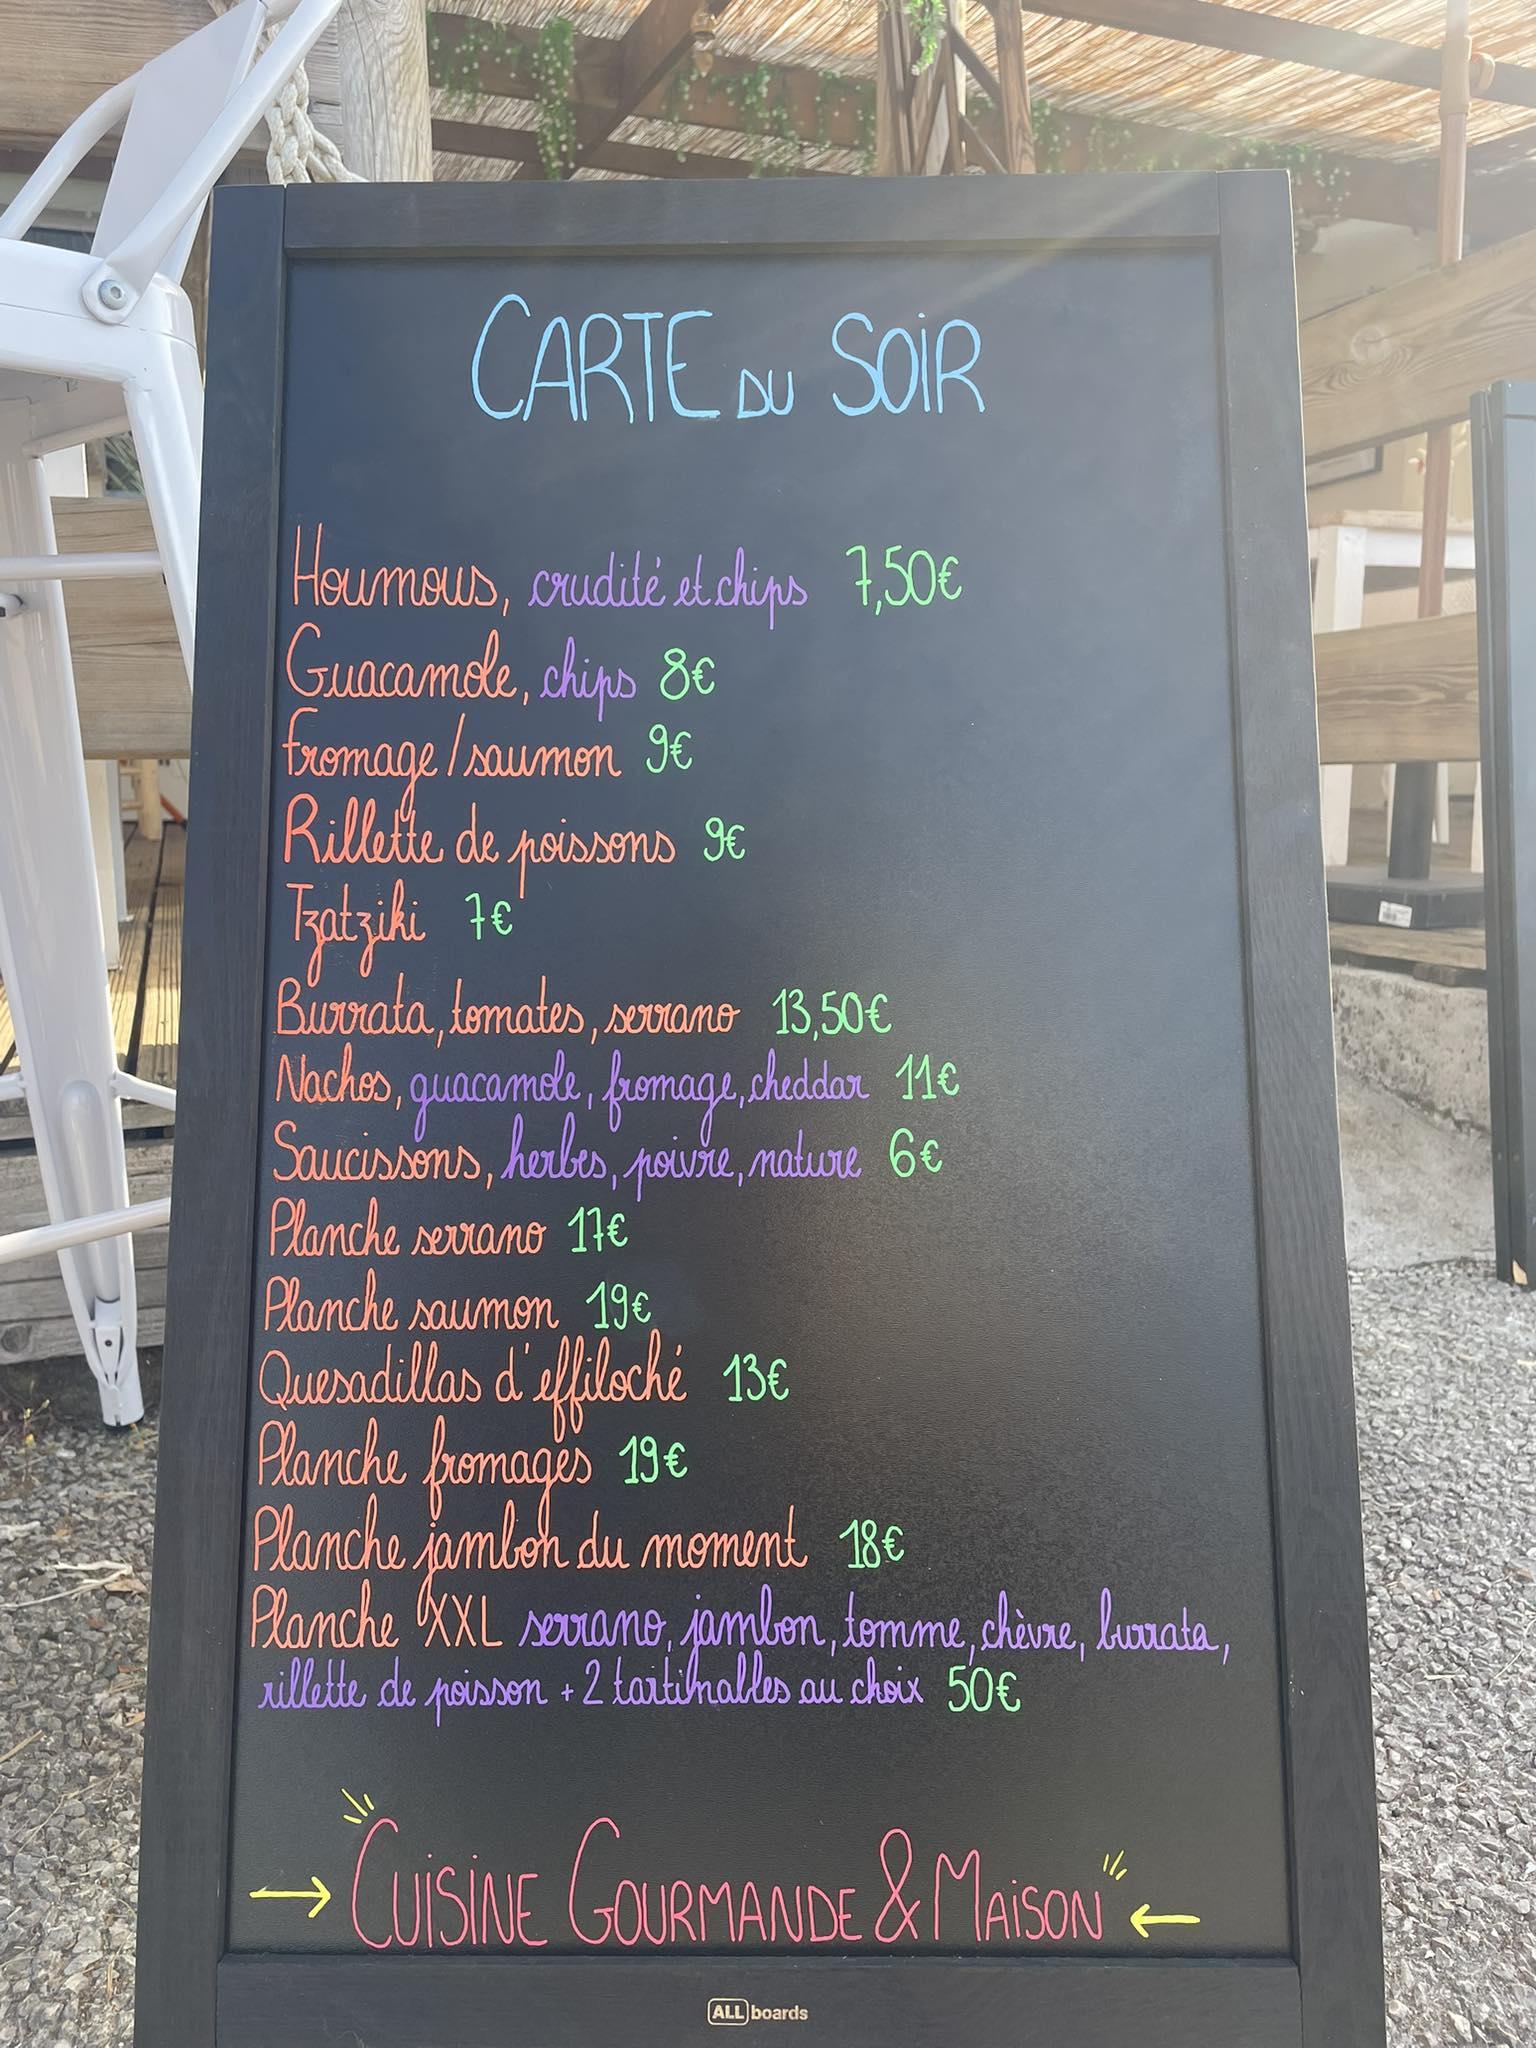 CARTE DU SOIR
Houmous, crudité et chips 7,50€
Guacamole, chips 8€
Fromage/saumon 9€
Rillette de poissons 9€
Tzatziki 7€
Burrata, tomates, serrano 13,50€
Nachos, guacamole, fromage, cheddar 11€
Saucissons, herbes, poivre, nature 6€
Planche serrano 17€
Planche saumon 19€
Quesadillas d'effiloché 13€
Planche fromages 19€
Planche jambon du moment 18€
Planche XXL serrano, jambon, tomme, chèvre, burrata,
rillette de poisson + 2 tartinables au choix 50€
→ CUISINE GOURMANDE & MAISON ←
ALL boards